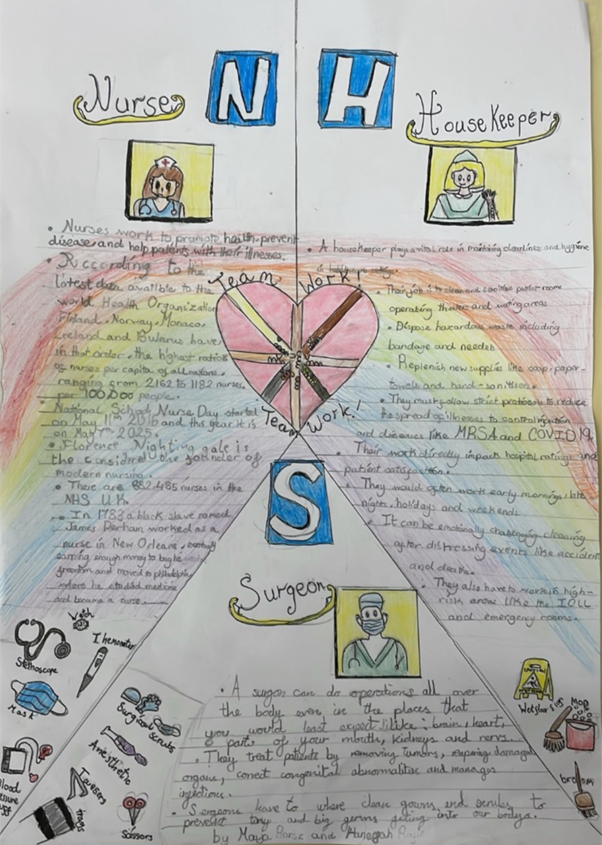 N H
Nurse
HouseKeeper
• Nurses work to promote health, prevent
disease and help patients with their illnesses.
• According to the
latest data availble to the
world Health Organization
Finland, Norway, Monaco
Ireland and Bularus have
in that order, the highest ratios
of nurses per capita of all nations
ranging from 2162 to 1182 nurses
per 100,000 people.
• National School Nurse Day started
on May 11th 2016 and this year it is
on May 7th 2025.
• Florence Nightingale is
the considred the founder of
modern nursing.
• There are 882,485 nurses in the
NHS U.K.
• In 1783 a black slave named
James Derham worked as a
nurse in New Orleans,
earning enough money to buy he
freedom and moved to
where he studied medicine
and became a nurse.
Team Work!
Team Work!
• A housekeeper plays a vital role in maintining cleanliness and hygiene
• Their job is to clean and sanitise patient rooms
operating theatre and waiting areas
• Dispose hazardous waste including
bandage and needles
• Replenish new supplies like soap, paper-
towels and hand-sanitisers.
• They must follow strict protocols to reduce
the spread of illnesses
and diseases like MRSA and COVID 19
• Their work directly impacts hospital ratings and
patient satisfaction.
• They would often work early mornings, late
nights, holidays and weekends
• It can be emotionally challenging cleaning
after distressing events like accident
and death.
• They also have to work in high-
risk areas like the
and emergency rooms.
S
Surgeon
• A surgon can do operations all over
the body even in the places that
you would least expect like: brain, heart,
parts of your mouth, kidneys and nervs.
• They treat patients by removing tumors, repairing damaged
organs, correct congenital abnormalities and manages
infections.
• Surgeons have to where clean gowns and scrubs to
prevent tiny and big germs getting into our bodys.
by Maya and
Stethoscope
Watch
Themometer
Mask
Surgical Scrubs
Anesthetic
Blood
pressure
cuff
Tweezers
Scissors
Wetfloor sign
Mop
broom